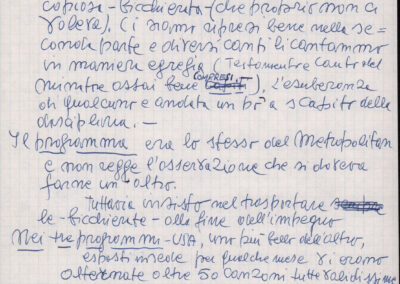 copiose - bicchierata (che proprio non ci
voleva). Ci siamo ripresi bene nella se=
conda parte e diversi canti li cantammo
in maniera egregia (Testamento e Canto del
minatore assai bene COMPRESI). L'esuberanza
di qualcuno è andata un pò a scapito della
disciplina. —
Il programma era lo stesso del Metropolitan
e non regge l'osservazione che si doveva
farne un altro. —
Tuttavia insisto nel trasportare
le - bicchierate - alla fine dell'impegno
Nei tre programmi - USA, uno più bello dell'altro,
esposti insieme per qualche mese vi erano
alternate oltre 50 canzoni tutte validissime